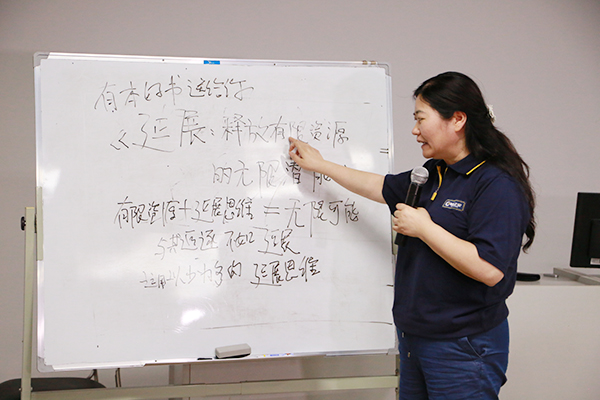 有本好书送给你
《延展:释放有限资源
的无限潜能
有限资源+延展思维=无限可能
与其追逐 不如延展
的 延展思维